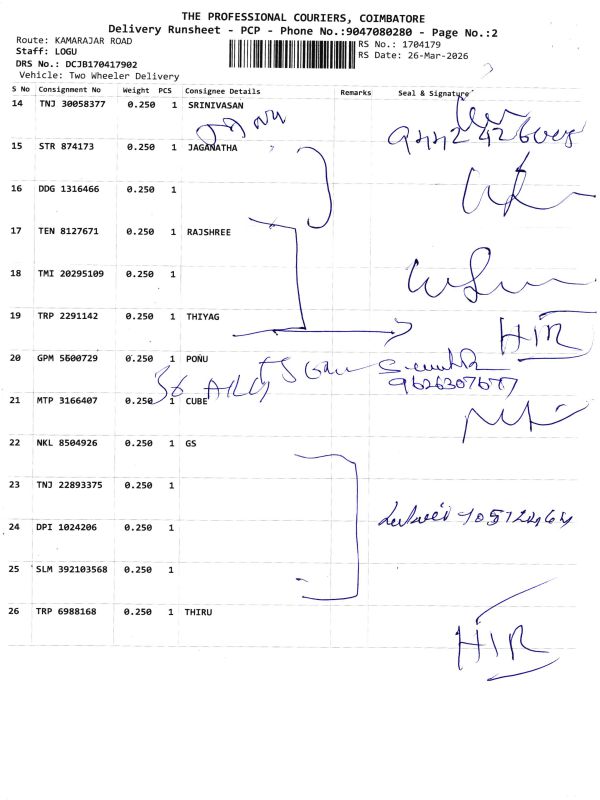 THE PROFESSIONAL COURIERS, COIMBATORE
Delivery Runsheet - PCP - Phone No.:9047080280 - Page No.:2
Route: KAMARAJAR ROAD
Staff: LOGU
DRS No.: DCJB170417902
Vehicle: Two Wheeler Delivery
RS No.: 1704179
RS Date: 26-Mar-2026
S No Consignment No Weight PCS Consignee Details Remarks Seal & Signature
14 TNJ 30058377 0.250 1 SRINIVASAN
15 STR 874173 0.250 1 JAGANATHA
16 DDG 1316466 0.250 1
17 TEN 8127671 0.250 1 RAJSHREE
18 TMI 20295109 0.250 1
19 TRP 2291142 0.250 1 THIYAG
HIR
20 GPM 5600729 0.250 1 PONU
9626307677
21 MTP 3166407 0.250 1 CUBE
22 NKL 8504926 0.250 1 GS
23 TNJ 22893375 0.250 1
24 DPI 1024206 0.250 1
25 SLM 392103568 0.250 1
26 TRP 6988168 0.250 1 THIRU
HIR